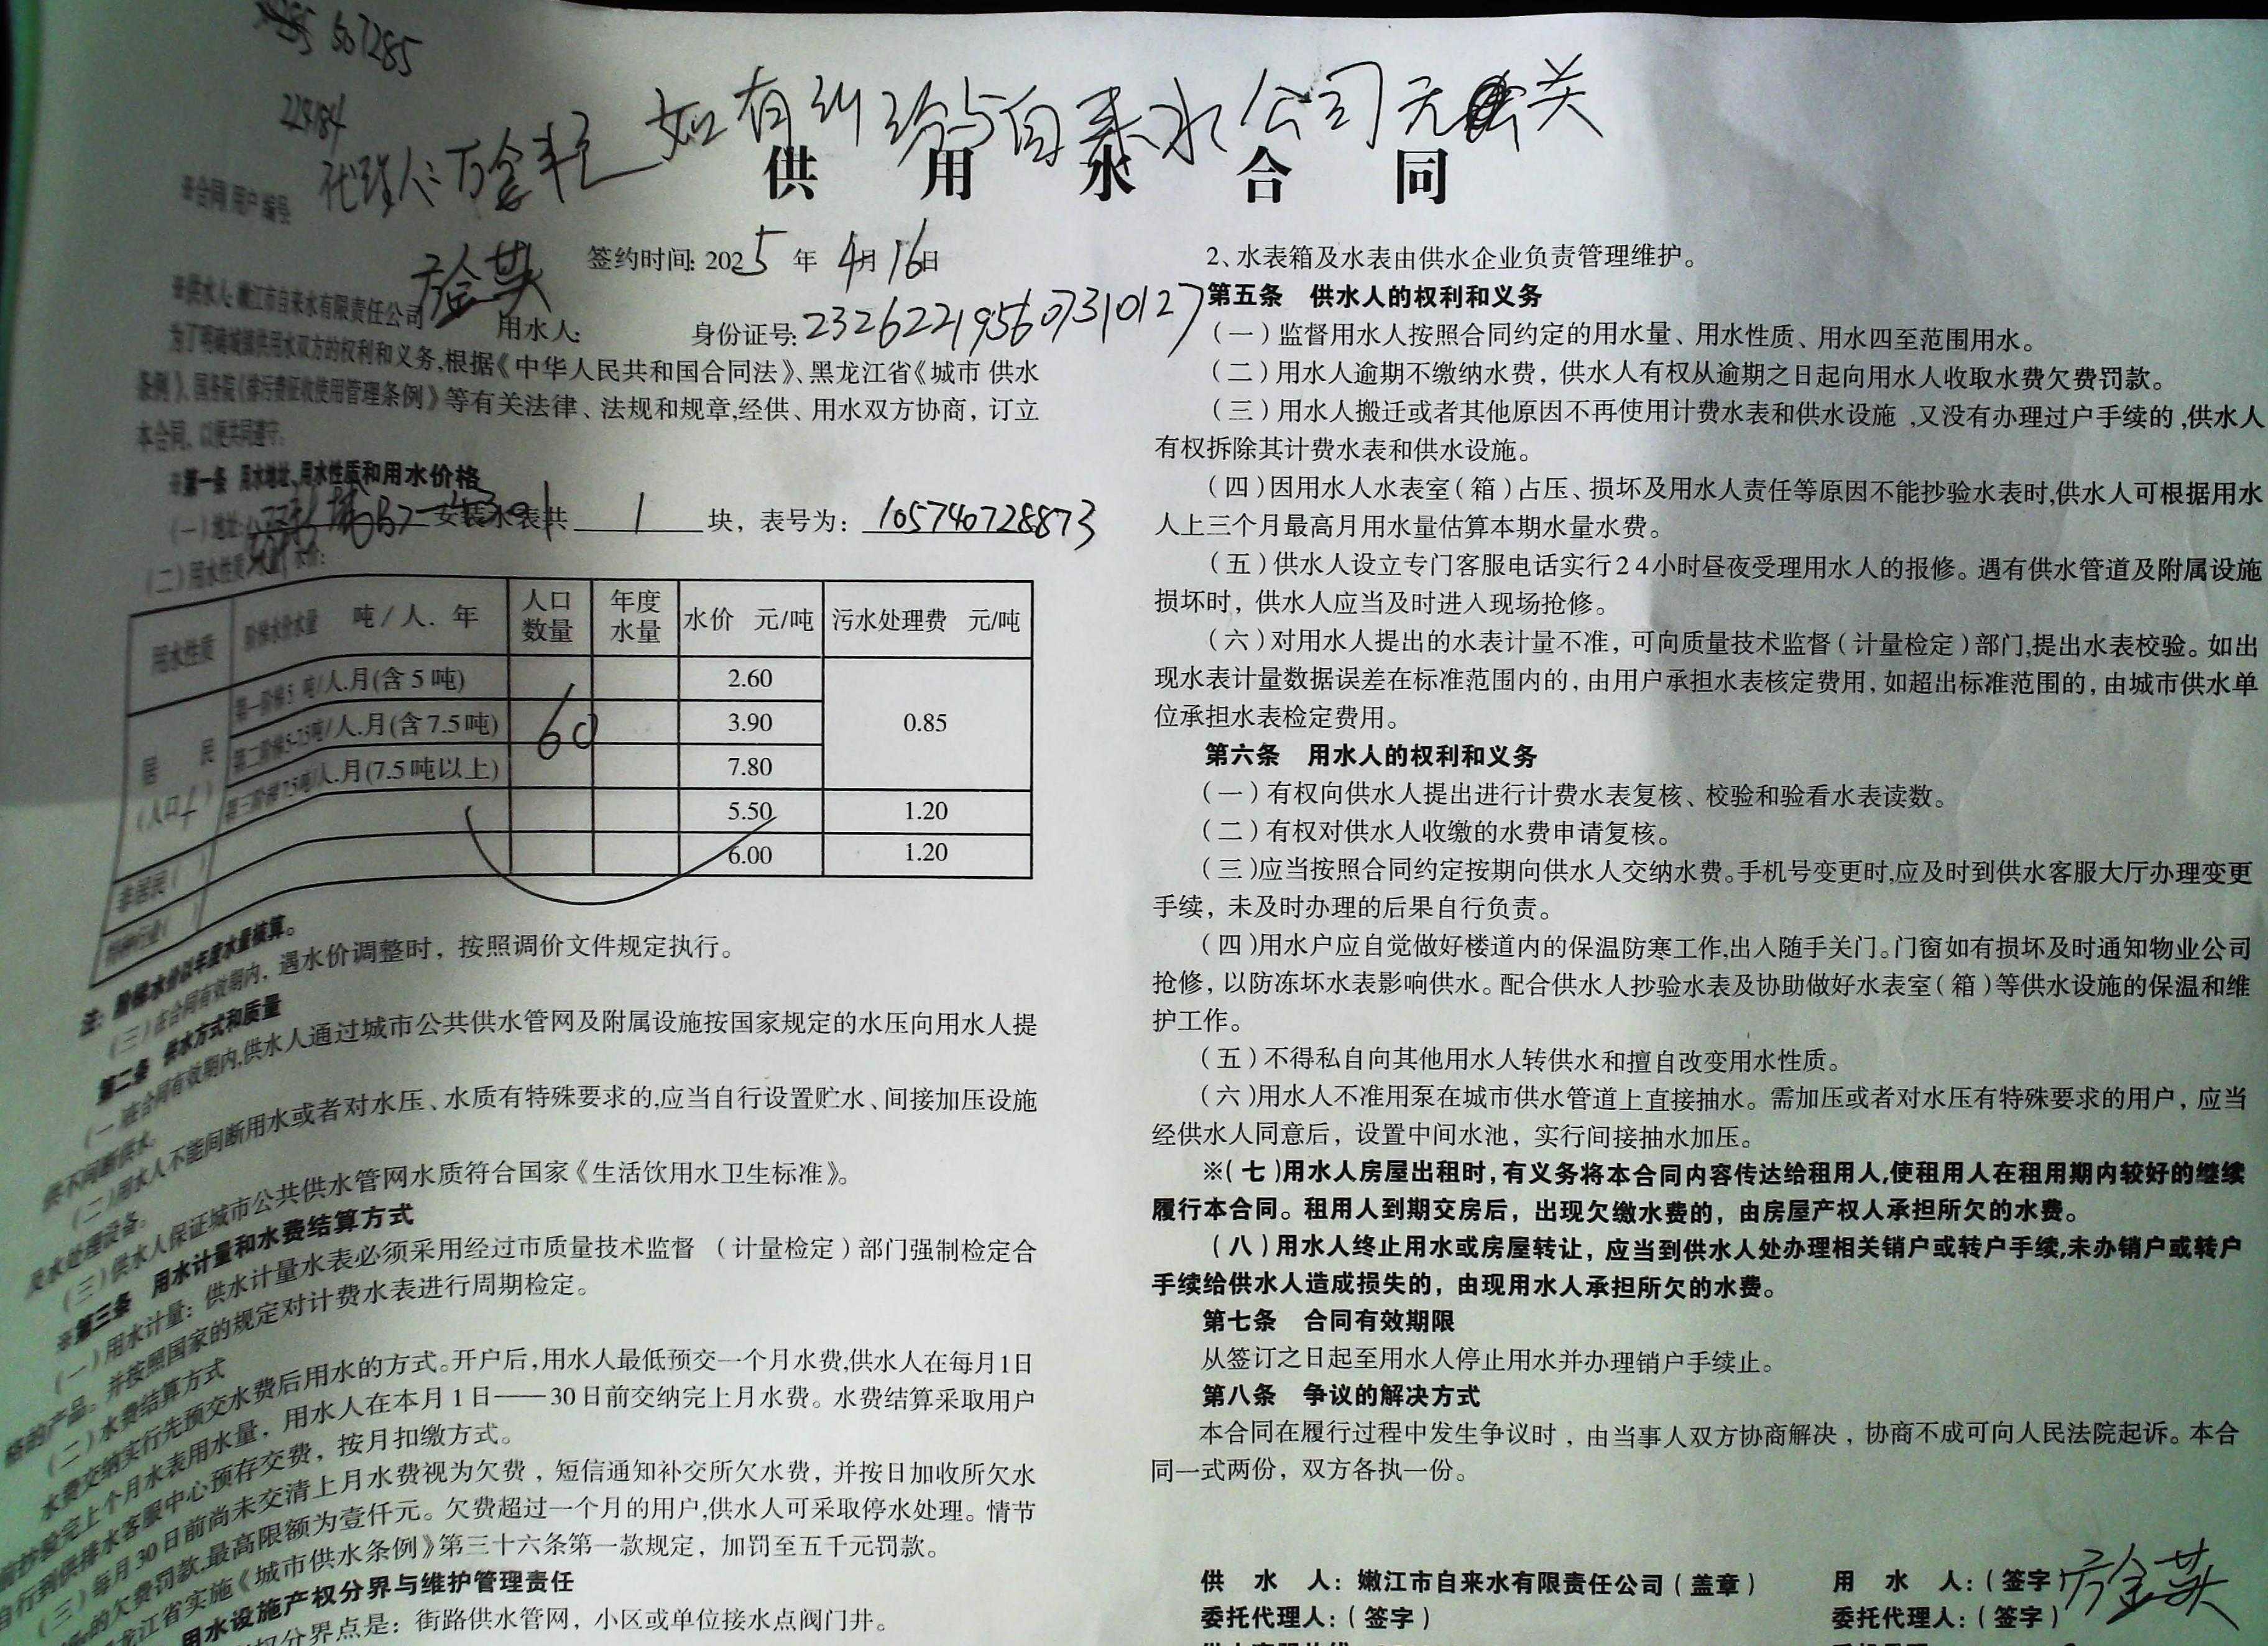 507285
224184
代理人: 万金丰 如有纠纷与自来水公司无关
供 用 水 合 同
※合同用户编号:
签约时间: 2025 年 4月16日
※供水人: 嫩江市自来水有限责任公司 用水人: 身份证号: 232622195607310127
为了明确城镇供用水双方的权利和义务,根据《中华人民共和国合同法》、黑龙江省《城市供水
条例》、国务院《排污费征收使用管理条例》等有关法律、法规和规章,经供、用水双方协商，订立
本合同，以便共同遵守。
※第一条 用水地址、用水性质和用水价格
(一)地址: 安装水表共 1 块，表号为: 105740728873
(二)用水性质 水价:
用水性质 阶梯水价水量 吨/人．年 人口数量 年度水量 水价 元/吨 污水处理费 元/吨
居 民 (人口 ) 第一阶梯5 吨/人.月(含5吨) 2.60 0.85
第二阶梯5-7.5吨/人.月(含7.5吨) 60 3.90
第三阶梯7.5吨/人.月(7.5吨以上) 7.80
非居民( ) 5.50 1.20
特种行业( ) 6.00 1.20
注: 阶梯水价以年度水量核算。
(三)在合同有效期内，遇水价调整时，按照调价文件规定执行。
第二条 供水方式和质量
(一)在合同有效期内,供水人通过城市公共供水管网及附属设施按国家规定的水压向用水人提
供不间断供水。
(二)用水人不能间断用水或者对水压、水质有特殊要求的,应当自行设置贮水、间接加压设施
及水处理设备。
(三)供水人保证城市公共供水管网水质符合国家《生活饮用水卫生标准》。
※第三条 用水计量和水费结算方式
(一)用水计量: 供水计量水表必须采用经过市质量技术监督 (计量检定)部门强制检定合
格的产品。并按照国家的规定对计费水表进行周期检定。
(二)水费结算方式
水费交纳实行先预交水费后用水的方式。开户后,用水人最低预交一个月水费,供水人在每月1日
前抄验完上个月水表用水量，用水人在本月1日——30日前交纳完上月水费。水费结算采取用户
自行到供排水客服中心预存交费，按月扣缴方式。
(三)每月30日前尚未交清上月水费视为欠费，短信通知补交所欠水费，并按日加收所欠水
的欠费罚款,最高限额为壹仟元。欠费超过一个月的用户,供水人可采取停水处理。情节
龙江省实施《城市供水条例》第三十六条第一款规定，加罚至五千元罚款。
用水设施产权分界与维护管理责任
权分界点是: 街路供水管网，小区或单位接水点阀门井。
2、水表箱及水表由供水企业负责管理维护。
第五条 供水人的权利和义务
(一)监督用水人按照合同约定的用水量、用水性质、用水四至范围用水。
(二)用水人逾期不缴纳水费，供水人有权从逾期之日起向用水人收取水费欠费罚款。
(三)用水人搬迁或者其他原因不再使用计费水表和供水设施,又没有办理过户手续的,供水人
有权拆除其计费水表和供水设施。
(四)因用水人水表室(箱)占压、损坏及用水人责任等原因不能抄验水表时,供水人可根据用水
人上三个月最高月用水量估算本期水量水费。
(五)供水人设立专门客服电话实行24小时昼夜受理用水人的报修。遇有供水管道及附属设施
损坏时，供水人应当及时进入现场抢修。
(六)对用水人提出的水表计量不准，可向质量技术监督(计量检定)部门,提出水表校验。如出
现水表计量数据误差在标准范围内的，由用户承担水表核定费用，如超出标准范围的，由城市供水单
位承担水表检定费用。
第六条 用水人的权利和义务
(一)有权向供水人提出进行计费水表复核、校验和验看水表读数。
(二)有权对供水人收缴的水费申请复核。
(三)应当按照合同约定按期向供水人交纳水费。手机号变更时,应及时到供水客服大厅办理变更
手续，未及时办理的后果自行负责。
(四)用水户应自觉做好楼道内的保温防寒工作,出入随手关门。门窗如有损坏及时通知物业公司
抢修，以防冻坏水表影响供水。配合供水人抄验水表及协助做好水表室(箱)等供水设施的保温和维
护工作。
(五)不得私自向其他用水人转供水和擅自改变用水性质。
(六)用水人不准用泵在城市供水管道上直接抽水。需加压或者对水压有特殊要求的用户，应当
经供水人同意后，设置中间水池，实行间接抽水加压。
※(七)用水人房屋出租时，有义务将本合同内容传达给租用人,使租用人在租用期内较好的继续
履行本合同。租用人到期交房后，出现欠缴水费的，由房屋产权人承担所欠的水费。
(八)用水人终止用水或房屋转让，应当到供水人处办理相关销户或转户手续,未办销户或转户
手续给供水人造成损失的，由现用水人承担所欠的水费。
第七条 合同有效期限
从签订之日起至用水人停止用水并办理销户手续止。
第八条 争议的解决方式
本合同在履行过程中发生争议时，由当事人双方协商解决，协商不成可向人民法院起诉。本合
同一式两份，双方各执一份。
供 水 人: 嫩江市自来水有限责任公司(盖章) 用 水 人: (签字)
委托代理人: (签字) 委托代理人: (签字)